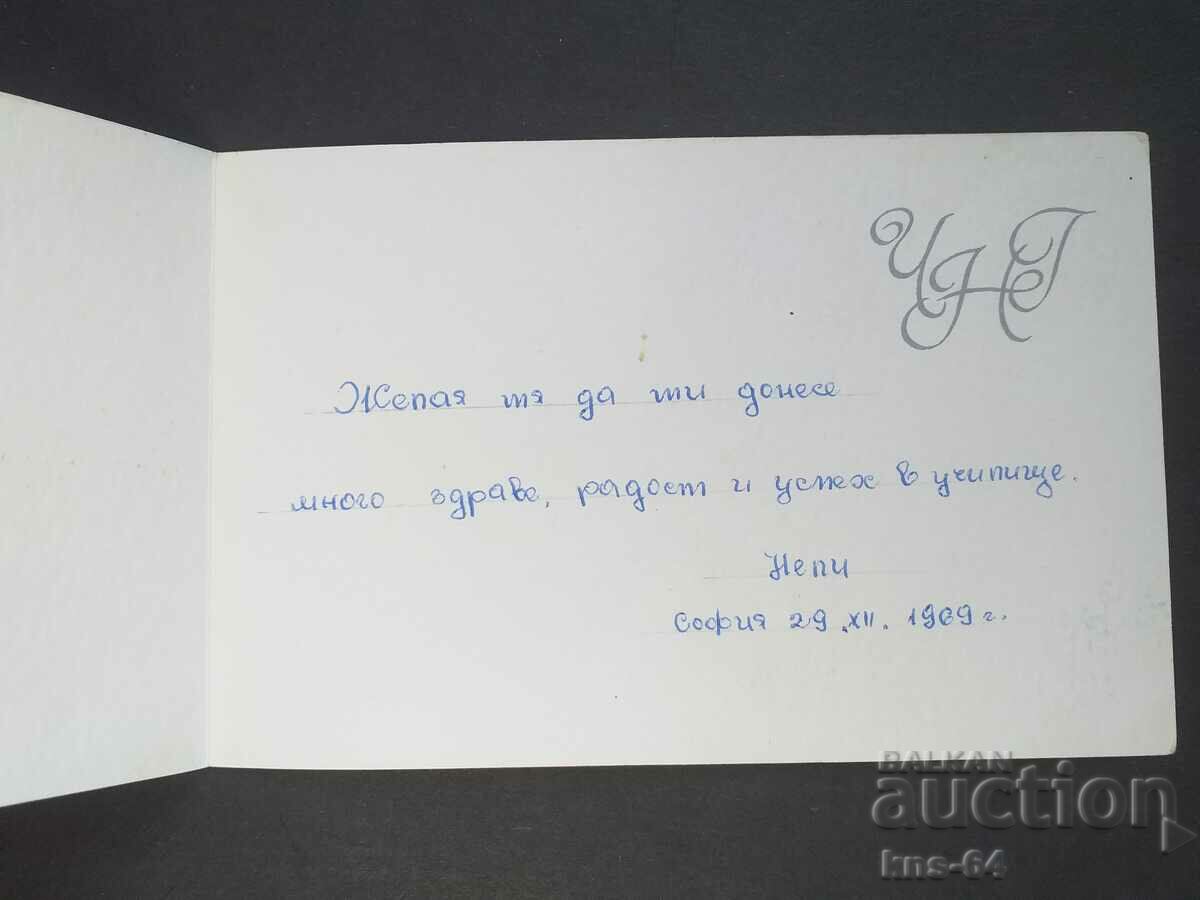 ЧНГ
Желая тя да ти донесе
много здраве, радост и успех в училище.
Нели
София 29.XII.1969 г.
BALKAN
auction
kns-64